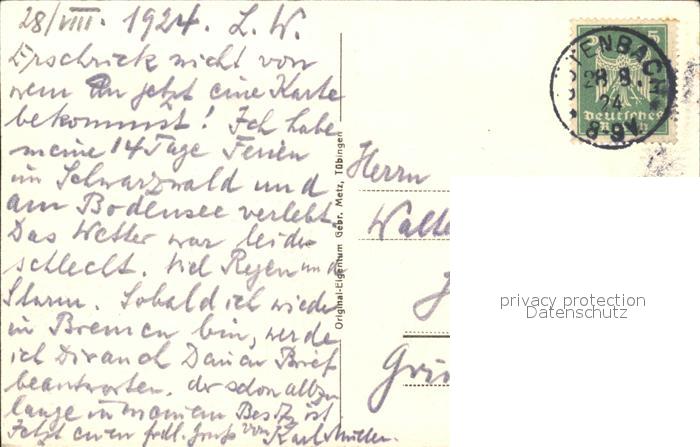 28/VIII. 1924. L. W.
Erschrick nicht von
wem Du jetzt eine Karte
bekommst! Ich habe
meine 14 Tage Ferien
im Schwarzwald und
am Bodensee verlebt.
Das Wetter war leider
schlecht. Viel Regen und
Sturm. Sobald ich wieder
in Bremen bin, werde
ich Dir auch Deinen Brief
beantworten, der schon allzu
lange in meinem Besitz ist
Jetzt einen frdl. Gruß von Karl
Original-Eigentum Gebr. Metz, Tübingen
TENBACH
28 8.
24
8-9V
5
Deutsches
Reich
Herrn
Walte
Gri
privacy protection
Datenschutz